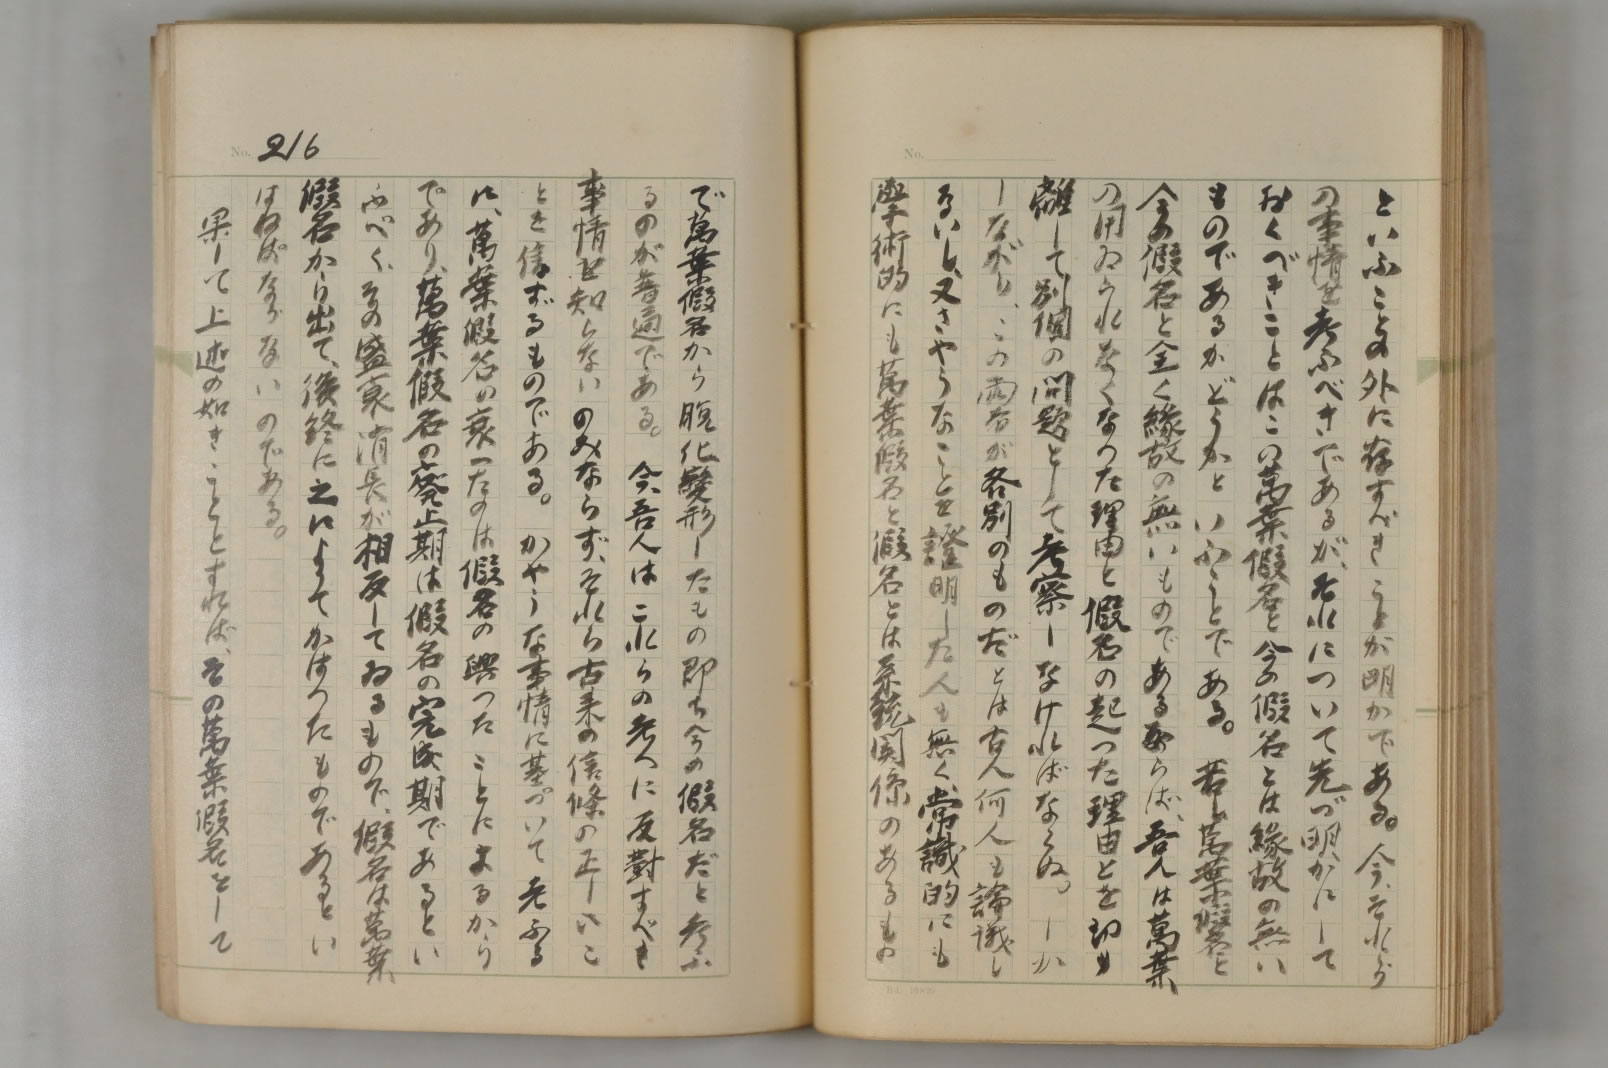 といふことの外に存すべきことが明かである。今、それら
の事情を考ふべきであるが、それについて先づ明かにして
おくべきことはこの萬葉假名と今の假名とは縁故の無い
ものであるかどうかといふことである。若し萬葉假名と
今の假名と全く縁故の無いものであるならば、吾人は萬葉
の用ゐられなくなつた理由と假名の起つた理由とを切り
離して別個の問題として考察しなければならぬ。しか
しながら、この兩者が各別のものだとは古人何人も論議し
ないし、又さやうなことを證明した人も無く、常識的にも
學術的にも萬葉假名と假名とは系統関係のあるもの
No.
No. 216
で萬葉假名から脱化變形したもの即ち今の假名だと考ふ
るのが普通である。今、吾人はこれらの考へに反對すべき
事情を知らないのみならず、それら古来の信條の正しいこ
とを信ずるものである。かやうな事情に基づいて考ふる
に、萬葉假名の衰つたのは假名の興つたことによるから
であり、萬葉假名の廃止期は假名の完成期であるとい
ふべく、その盛衰消長が相反してゐるもので、假名は萬葉
假名から出て、後終に之によつてかはつたものであるとい
はねばならないのである。
果して上述の如きことすれば、その萬葉假名をして